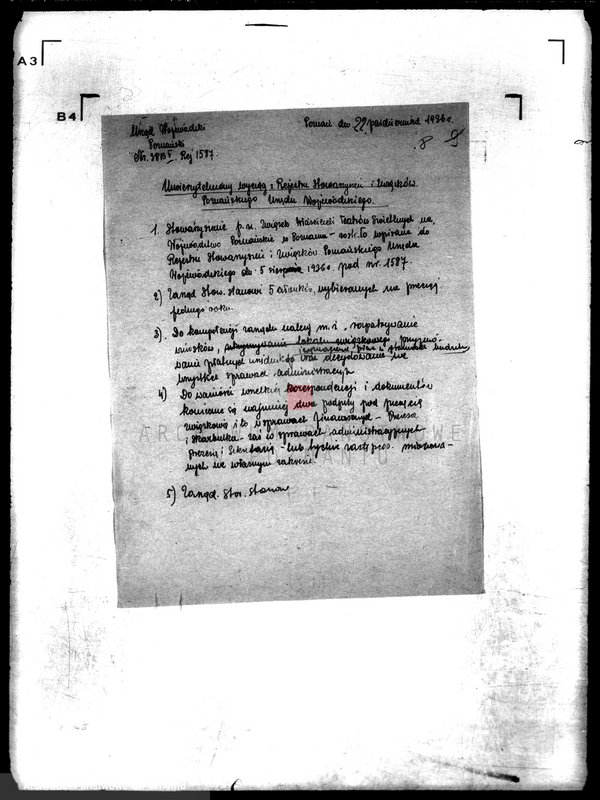 A3
B4
Urząd Wojewódzki
Poznański
Nr. Rej 1587
Poznań dn 22 października 1936 r.
8 9
Uwierzytelniony wyciąg z Rejestru Stowarzyszeń i Związków
Poznańskiego Urzędu Wojewódzkiego.
1. Stowarzyszenie p. n. Związek Właścicieli Teatrów Świetlnych na
Województwo Poznańskie w Poznaniu – zostało wpisane do
Rejestru Stowarzyszeń i Związków Poznańskiego Urzędu
Wojewódzkiego dn. 5 sierpnia 1936 r. pod nr. 1587.
2) Zarząd Stow. stanowi 5 członków, wybieranych na przeciąg
jednego roku.
3). Do kompetencji zarządu należy m. i. rozpatrywanie
wniosków, utrzymywanie lokalu związkowego, przyjmo-
wanie płatnych urzędników oraz decydowanie we
wszystkie sprawach administracyjn
4) Do ważności wszelkiej korespondencji i dokumentów
konieczne są najmniej dwa podpisy pod pieczęcią
związkową i to w sprawach finansowych – Prezesa
i Skarbnika – zaś w sprawach administracyjnych
Prezesa i Sekretarza – lub tychże zastępców
we własnym zakresie.
5) Zarząd. Stow. stanow